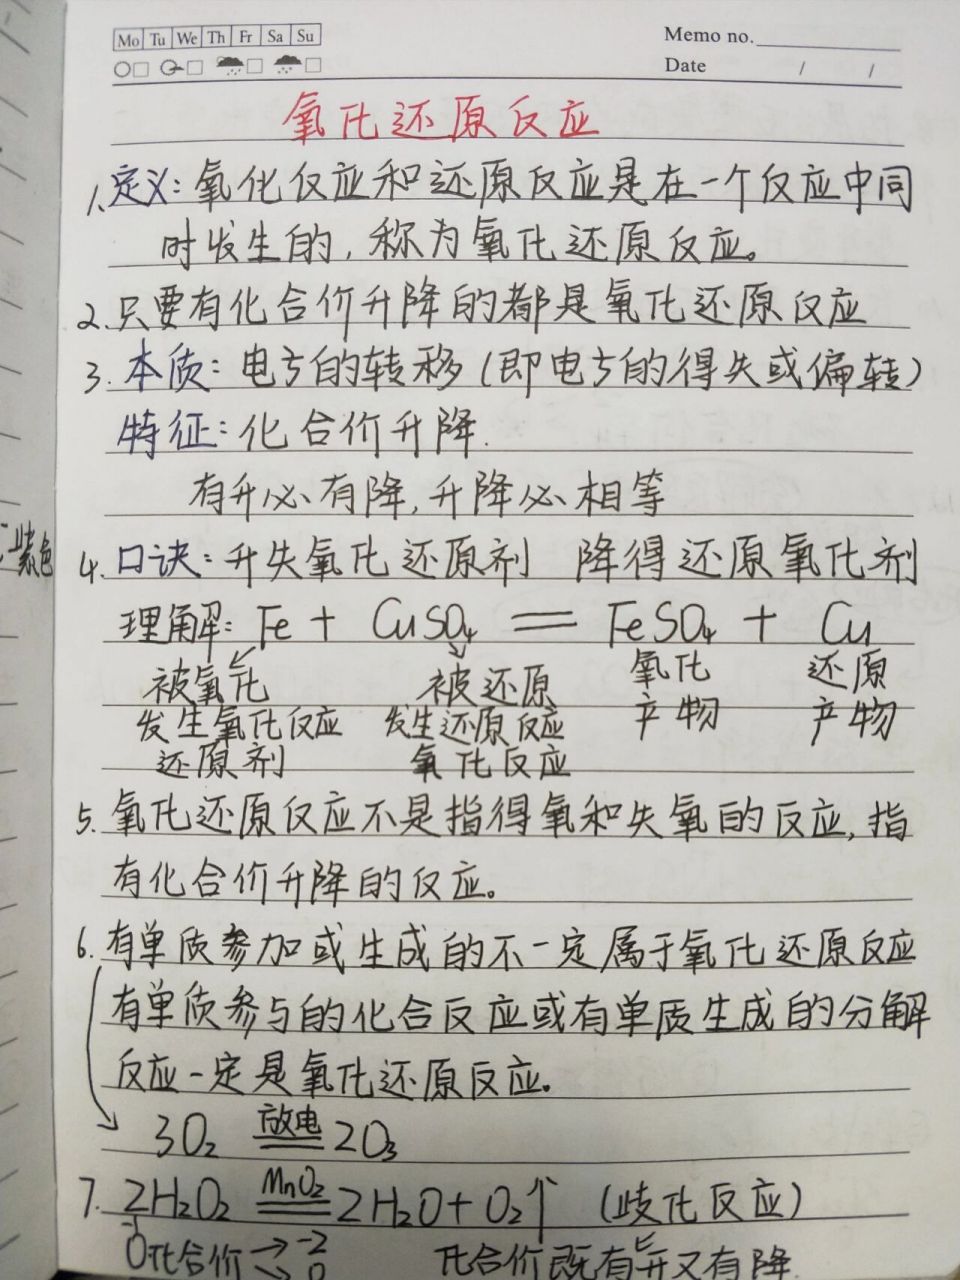 Mo Tu We Th Fr Sa Su
Memo no.
Date / /
氧化还原反应
1.定义:氧化反应和还原反应是在一个反应中同
时发生的,称为氧化还原反应。
2.只要有化合价升降的都是氧化还原反应
3.本质:电子的转移(即电子的得失或偏转)
特征:化合价升降.
有升必有降,升降必相等
紫色
4.口诀:升失氧化还原剂 降得还原氧化剂
理解:Fe + CuSO₄ == FeSO₄ + Cu
被氧化 被还原 氧化 还原
发生氧化反应 发生还原反应 产物 产物
还原剂 氧化反应
5.氧化还原反应不是指得氧和失氧的反应,指
有化合价升降的反应。
6.有单质参加或生成的不一定属于氧化还原反应
有单质参与的化合反应或有单质生成的分解
反应一定是氧化还原反应。
3O₂ 放电 == 2O₃
7. 2H₂O₂ MnO₂ == 2H₂O + O₂↑ (歧化反应)
O化合价 → -2 化合价既有升又有降.
→ 0